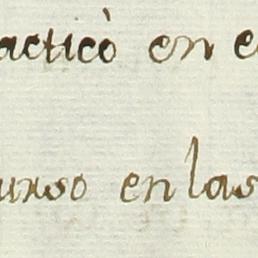 acticò en e
urso en las